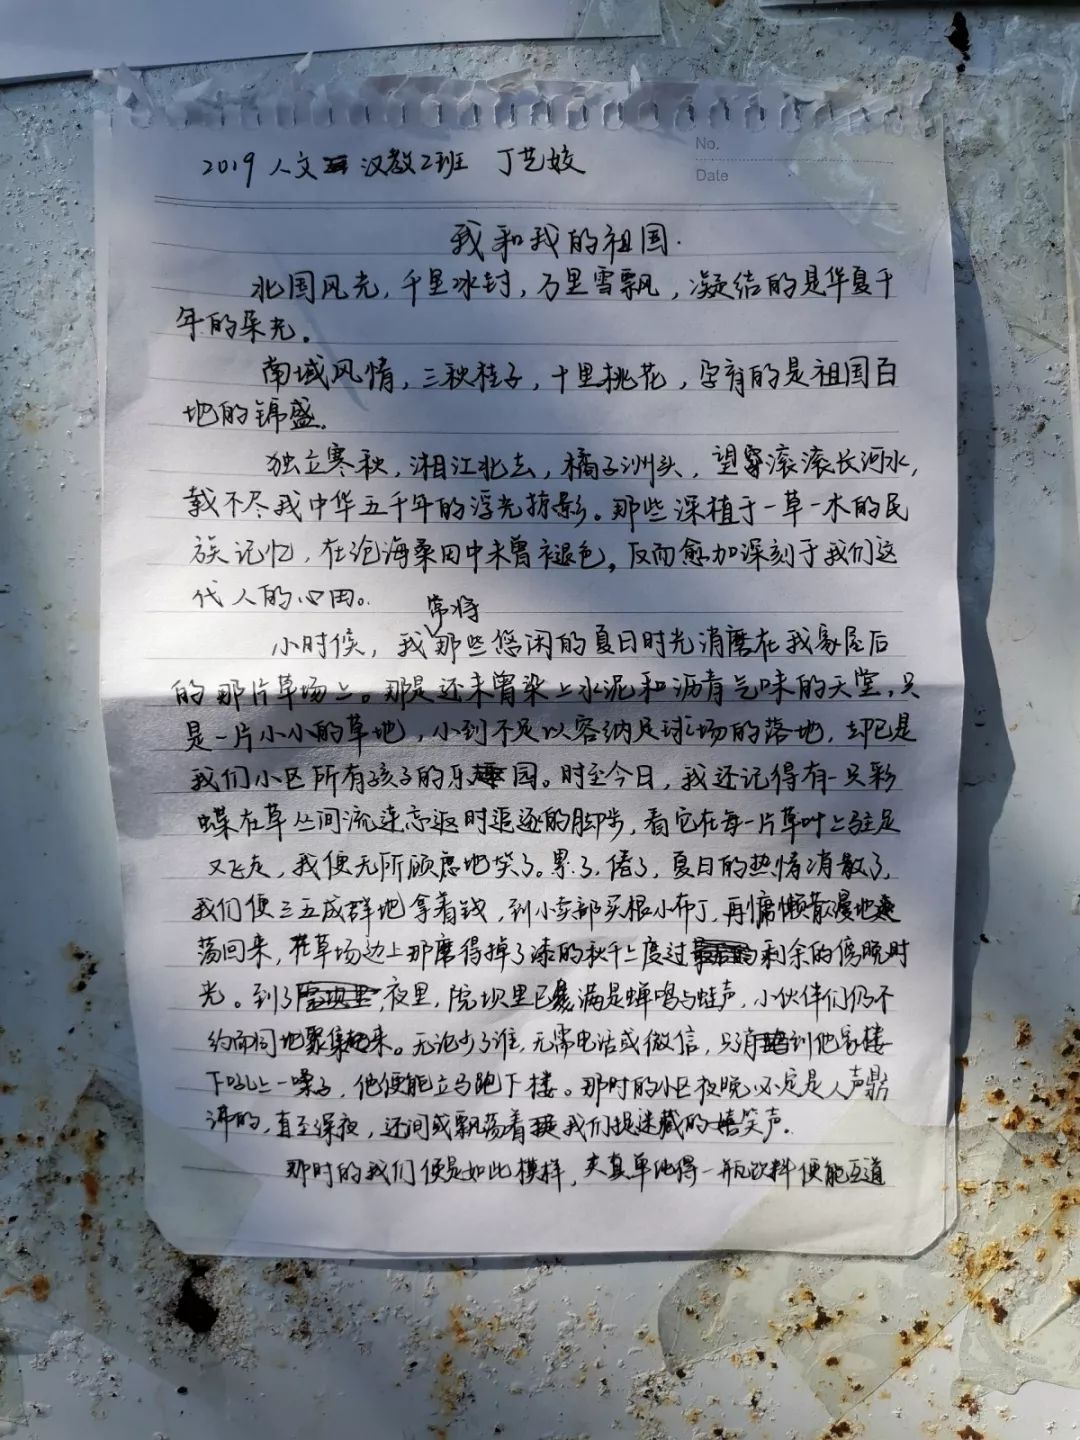 No.
Date
2019 人文 汉教2班 丁艺姣
我和我的祖国.
北国风光,千里冰封,万里雪飘,凝结的是华夏千
年的荣光。
南域风情,三秋桂子,十里桃花,孕育的是祖国百
地的锦盛.
独立寒秋,湘江北去,橘子洲头,望穿滚滚长河水,
载不尽我中华五千年的浮光掠影。那些深植于一草一木的民
族记忆,在沧海桑田中未曾褪色,反而愈加深刻于我们这
代人的心田。
小时候,我常将那些悠闲的夏日时光消磨在我家屋后
的那片草场上。那是还未曾染上水泥和沥青气味的天堂,只
是一片小小的草地,小到不足以容纳足球场的落地,却已是
我们小区所有孩子的乐园。时至今日,我还记得有一只彩
蝶在草丛间流连忘返时追逐的脚步,看它在每一片草叶上驻足
又飞走,我便无所顾虑地笑了。累了,倦了,夏日的热情消散了,
我们便三五成群地拿着钱,到小卖部买根小布丁,再慵懒散漫地
荡回来,在草场边上那磨得掉了漆的秋千上度过剩余的傍晚时
光。到了夜里,院坝里已满是蝉鸣与蛙声,小伙伴们仍不
约而同地聚集起来。无论少了谁,无需电话或微信,只消到他家楼
下吼上一嗓子,他便能立马跑下楼。那时的小区夜晚必定是人声鼎
沸的,直至深夜,还间或飘荡着我们捉迷藏的嬉笑声.
那时的我们便是如此模样,天真单纯得一瓶饮料便能互道